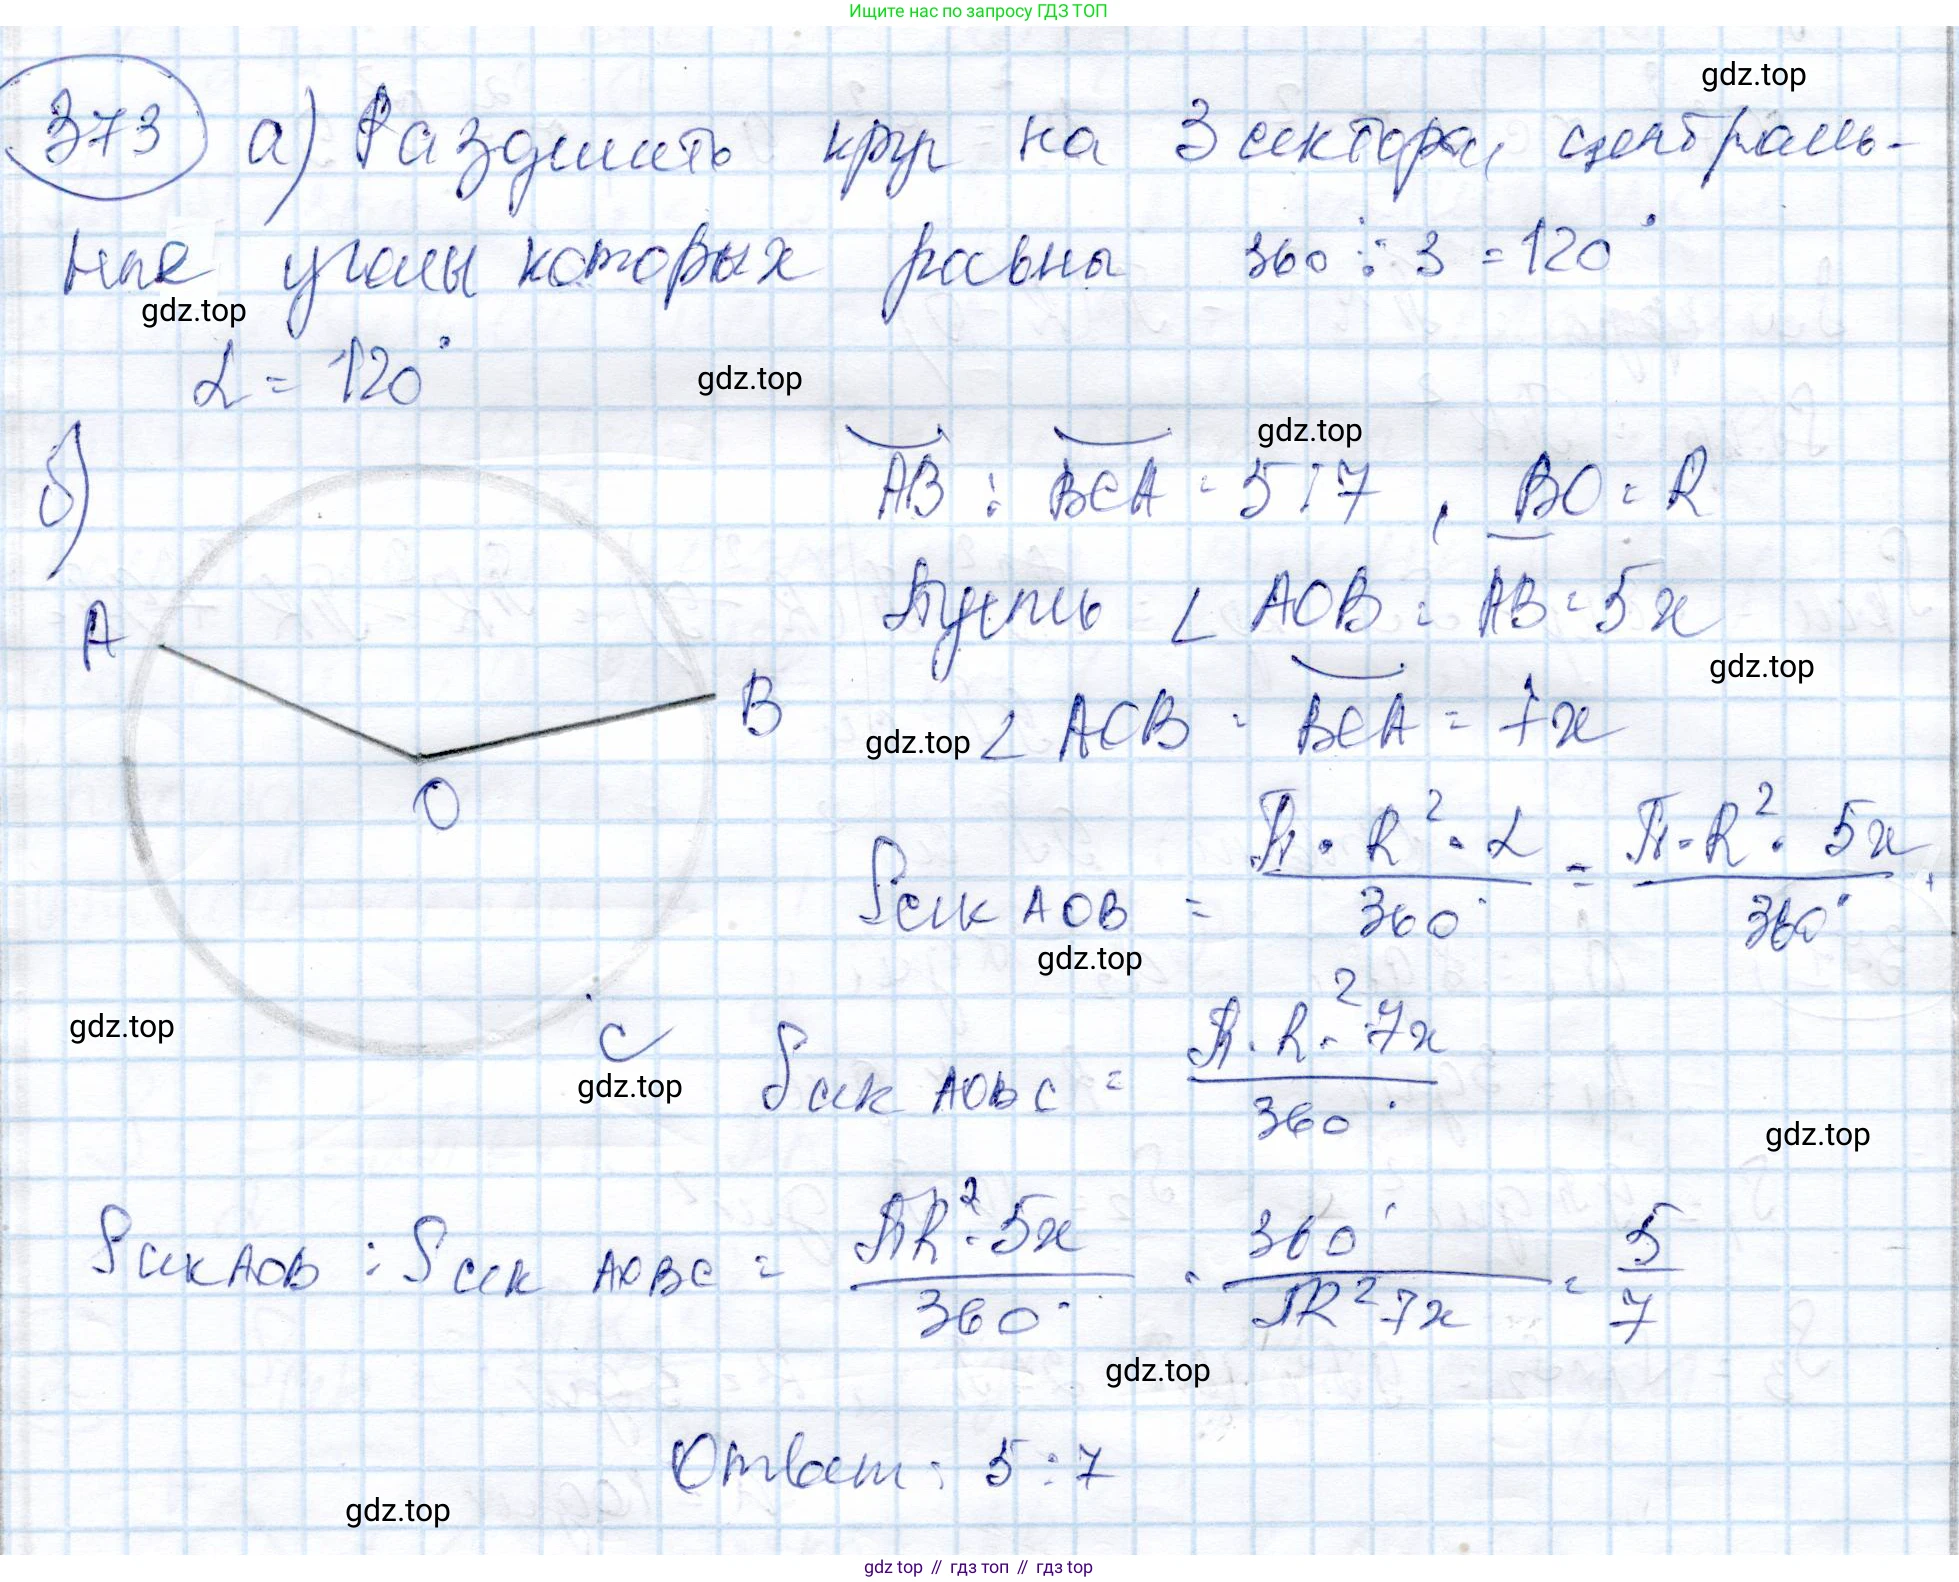 Ищите нас по запросу ГДЗ ТОП
gdz.top
373 а) Разделить круг на 3 сектора, централь-
ные углы которых равны 360 : 3 = 120°
gdz.top
α = 120°
gdz.top
gdz.top
б) AB : BCA = 5 : 7, BO = R
Пусть ∠ AOB = AB = 5x
A
gdz.top
B
∠ ACB = BCA = 7x
gdz.top
O
Sсек AOB = π · R² · α / 360° = π · R² · 5x / 360°
gdz.top
gdz.top
C
Sсек AOBC = π · R² · 7x / 360°
gdz.top
gdz.top
Sсек AOB : Sсек AOBC = πR² · 5x / 360° · 360° / πR² 7x = 5 / 7
gdz.top
Ответ: 5 : 7
gdz.top
gdz top // гдз топ // гдз top